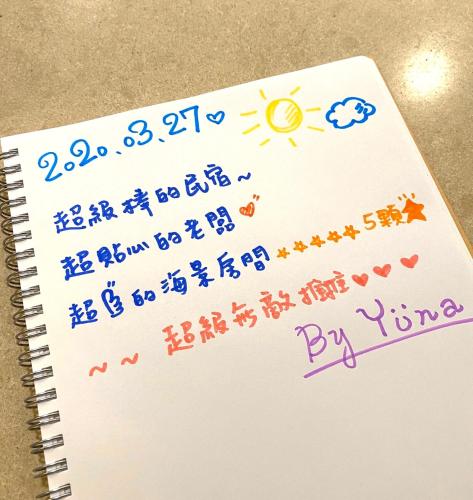 2020.03.27♡
超級棒的民宿~
超貼心的老闆♥
超美的海景房間★★★★★5顆★
~~超級無敵推♥♥♥
By Yüna